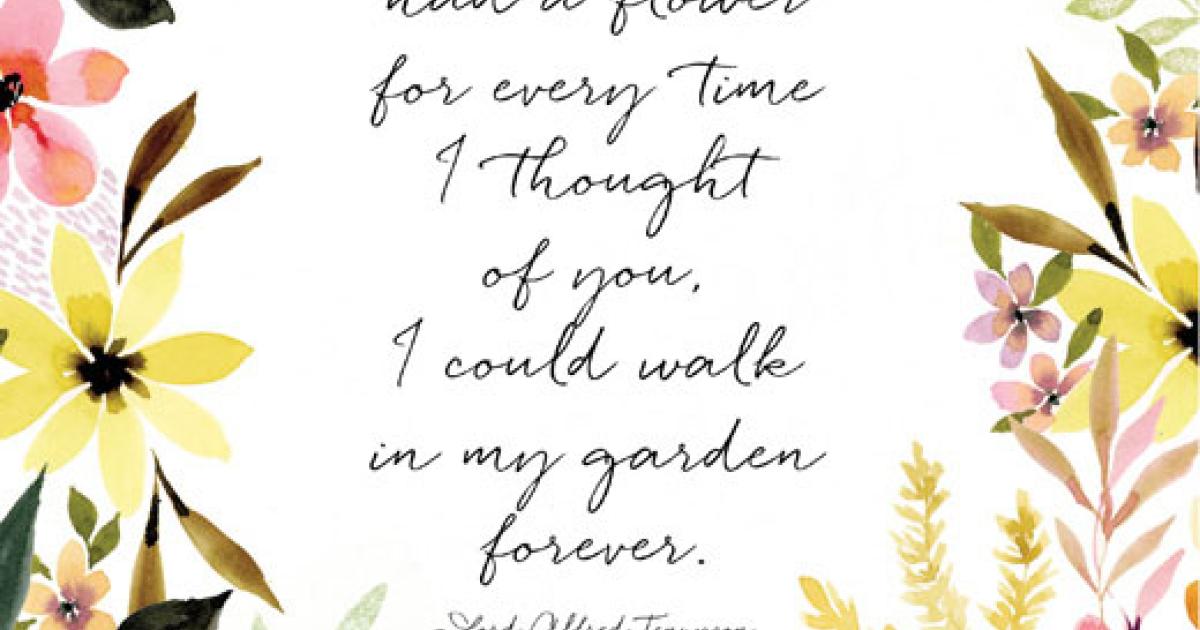 had a flower
for every time
I thought
of you,
I could walk
in my garden
forever.
Lord Alfred Tennyson